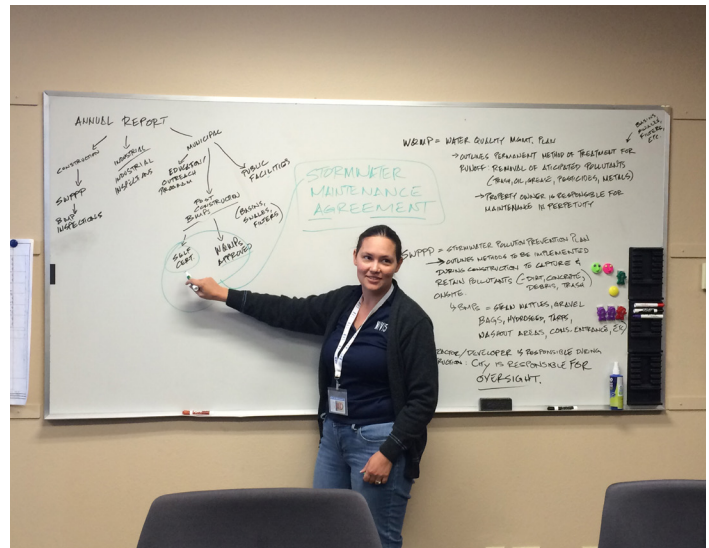 ANNUAL REPORT
CONSTRUCTION
SWPPP
BMP
INSPECTIONS
INDUSTRIAL
INDUSTRIAL
INSPECTIONS
MUNICIPAL
EDUCATION/
OUTREACH
PROGRAM
POST
CONSTRUCTION
BMPS
(BASINS,
SWALES,
FILTERS)
PUBLIC
FACILITIES
SELF
CERT
WQMPS
APPROVED
STORMWATER
MAINTENANCE
AGREEMENT
WQMP = WATER QUALITY MGMT. PLAN
→ OUTLINES PERMANENT METHOD OF TREATMENT FOR
RUNOFF: REMOVAL OF ATICIPATED POLLUTANTS
(TRASH, OIL, GREASE, PESTICIDES, METALS)
→ PROPERTY OWNER IS RESPONSIBLE FOR
MAINTENANCE IN PERPETUITY
BASINS
SWALES,
FILTERS,
ETC.
SWPPP = STORMWATER POLLUTION PREVENTION PLAN
→ OUTLINES METHODS TO BE IMPLEMENTED
DURING CONSTRUCTION TO CAPTURE &
RETAIN POLLUTANTS (DIRT, CONCRETE,
DEBRIS, TRASH)
ONSITE.
↳ BMPS = STRAW WATTLES, GRAVEL
BAGS, HYDROSEED, TARPS,
WASHOUT AREAS, CONS. ENTRANCE, ETC)
/DEVELOPER IS RESPONSIBLE DURING
: CITY IS RESPONSIBLE FOR
OVERSIGHT.